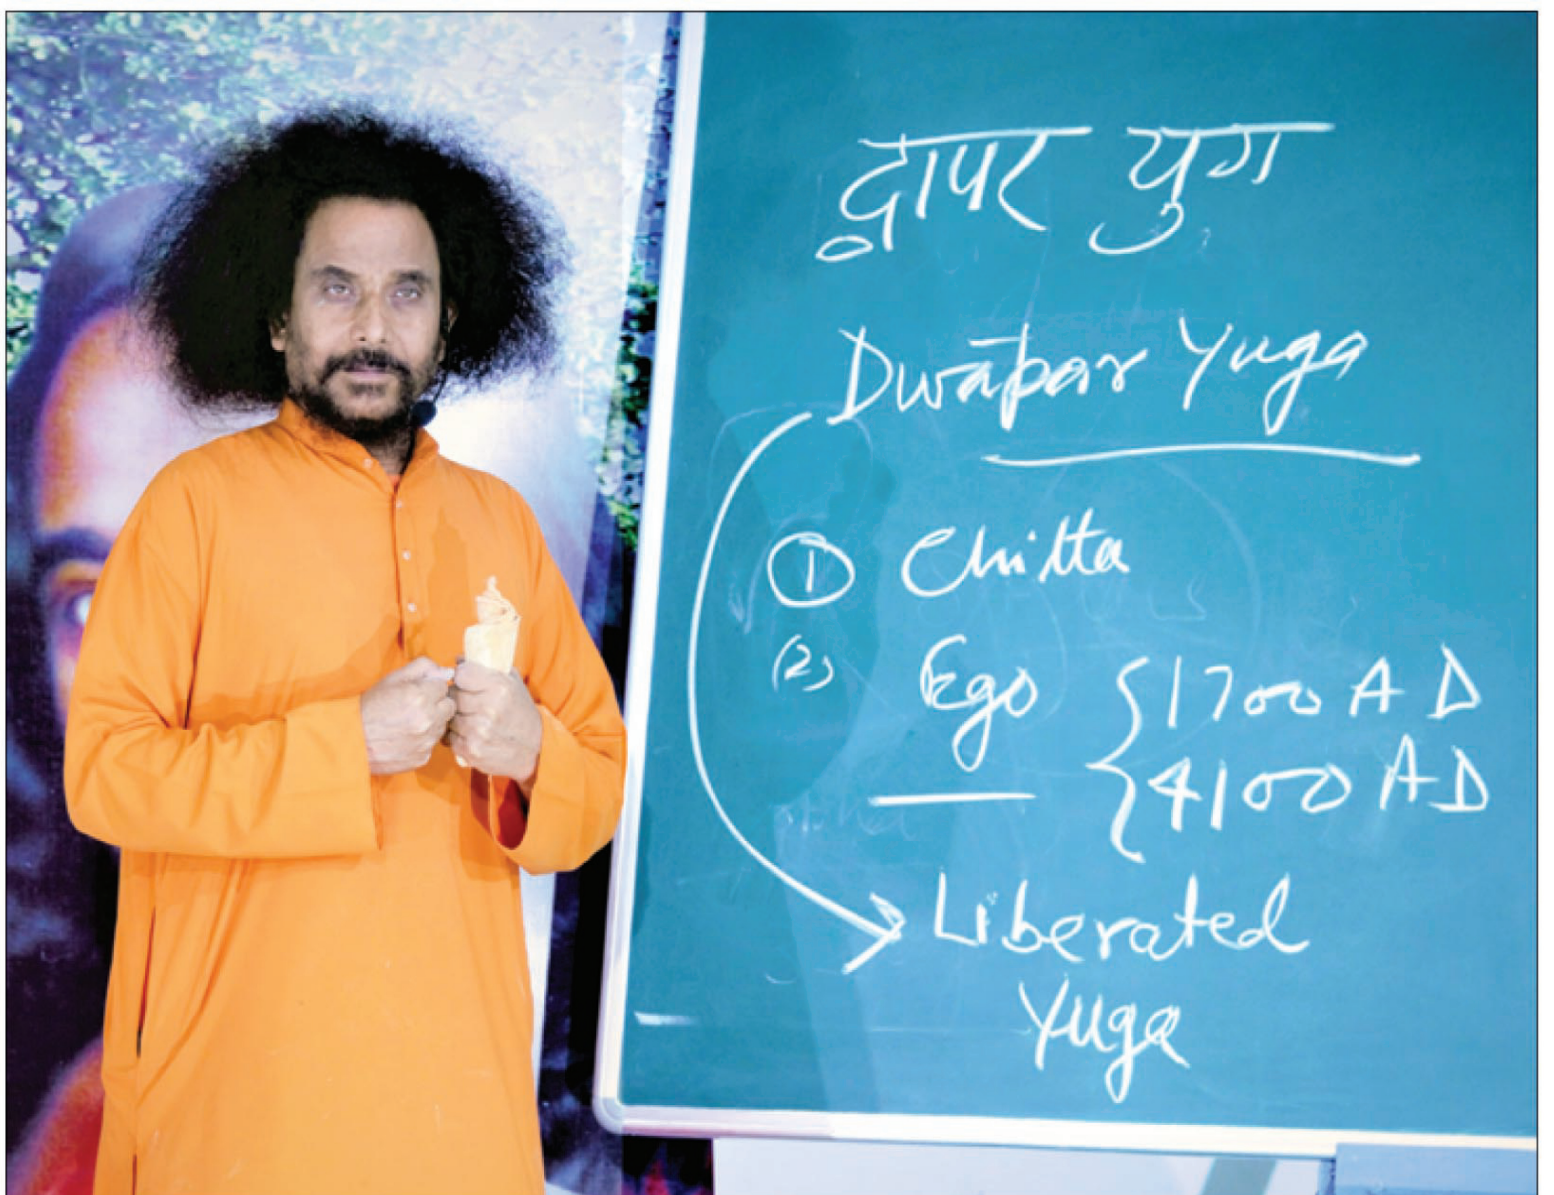 द्वापर युग
Dwāpar Yuga
① Chitta
(2) Ego { 1700 A D
4100 AD
Liberated
Yuga